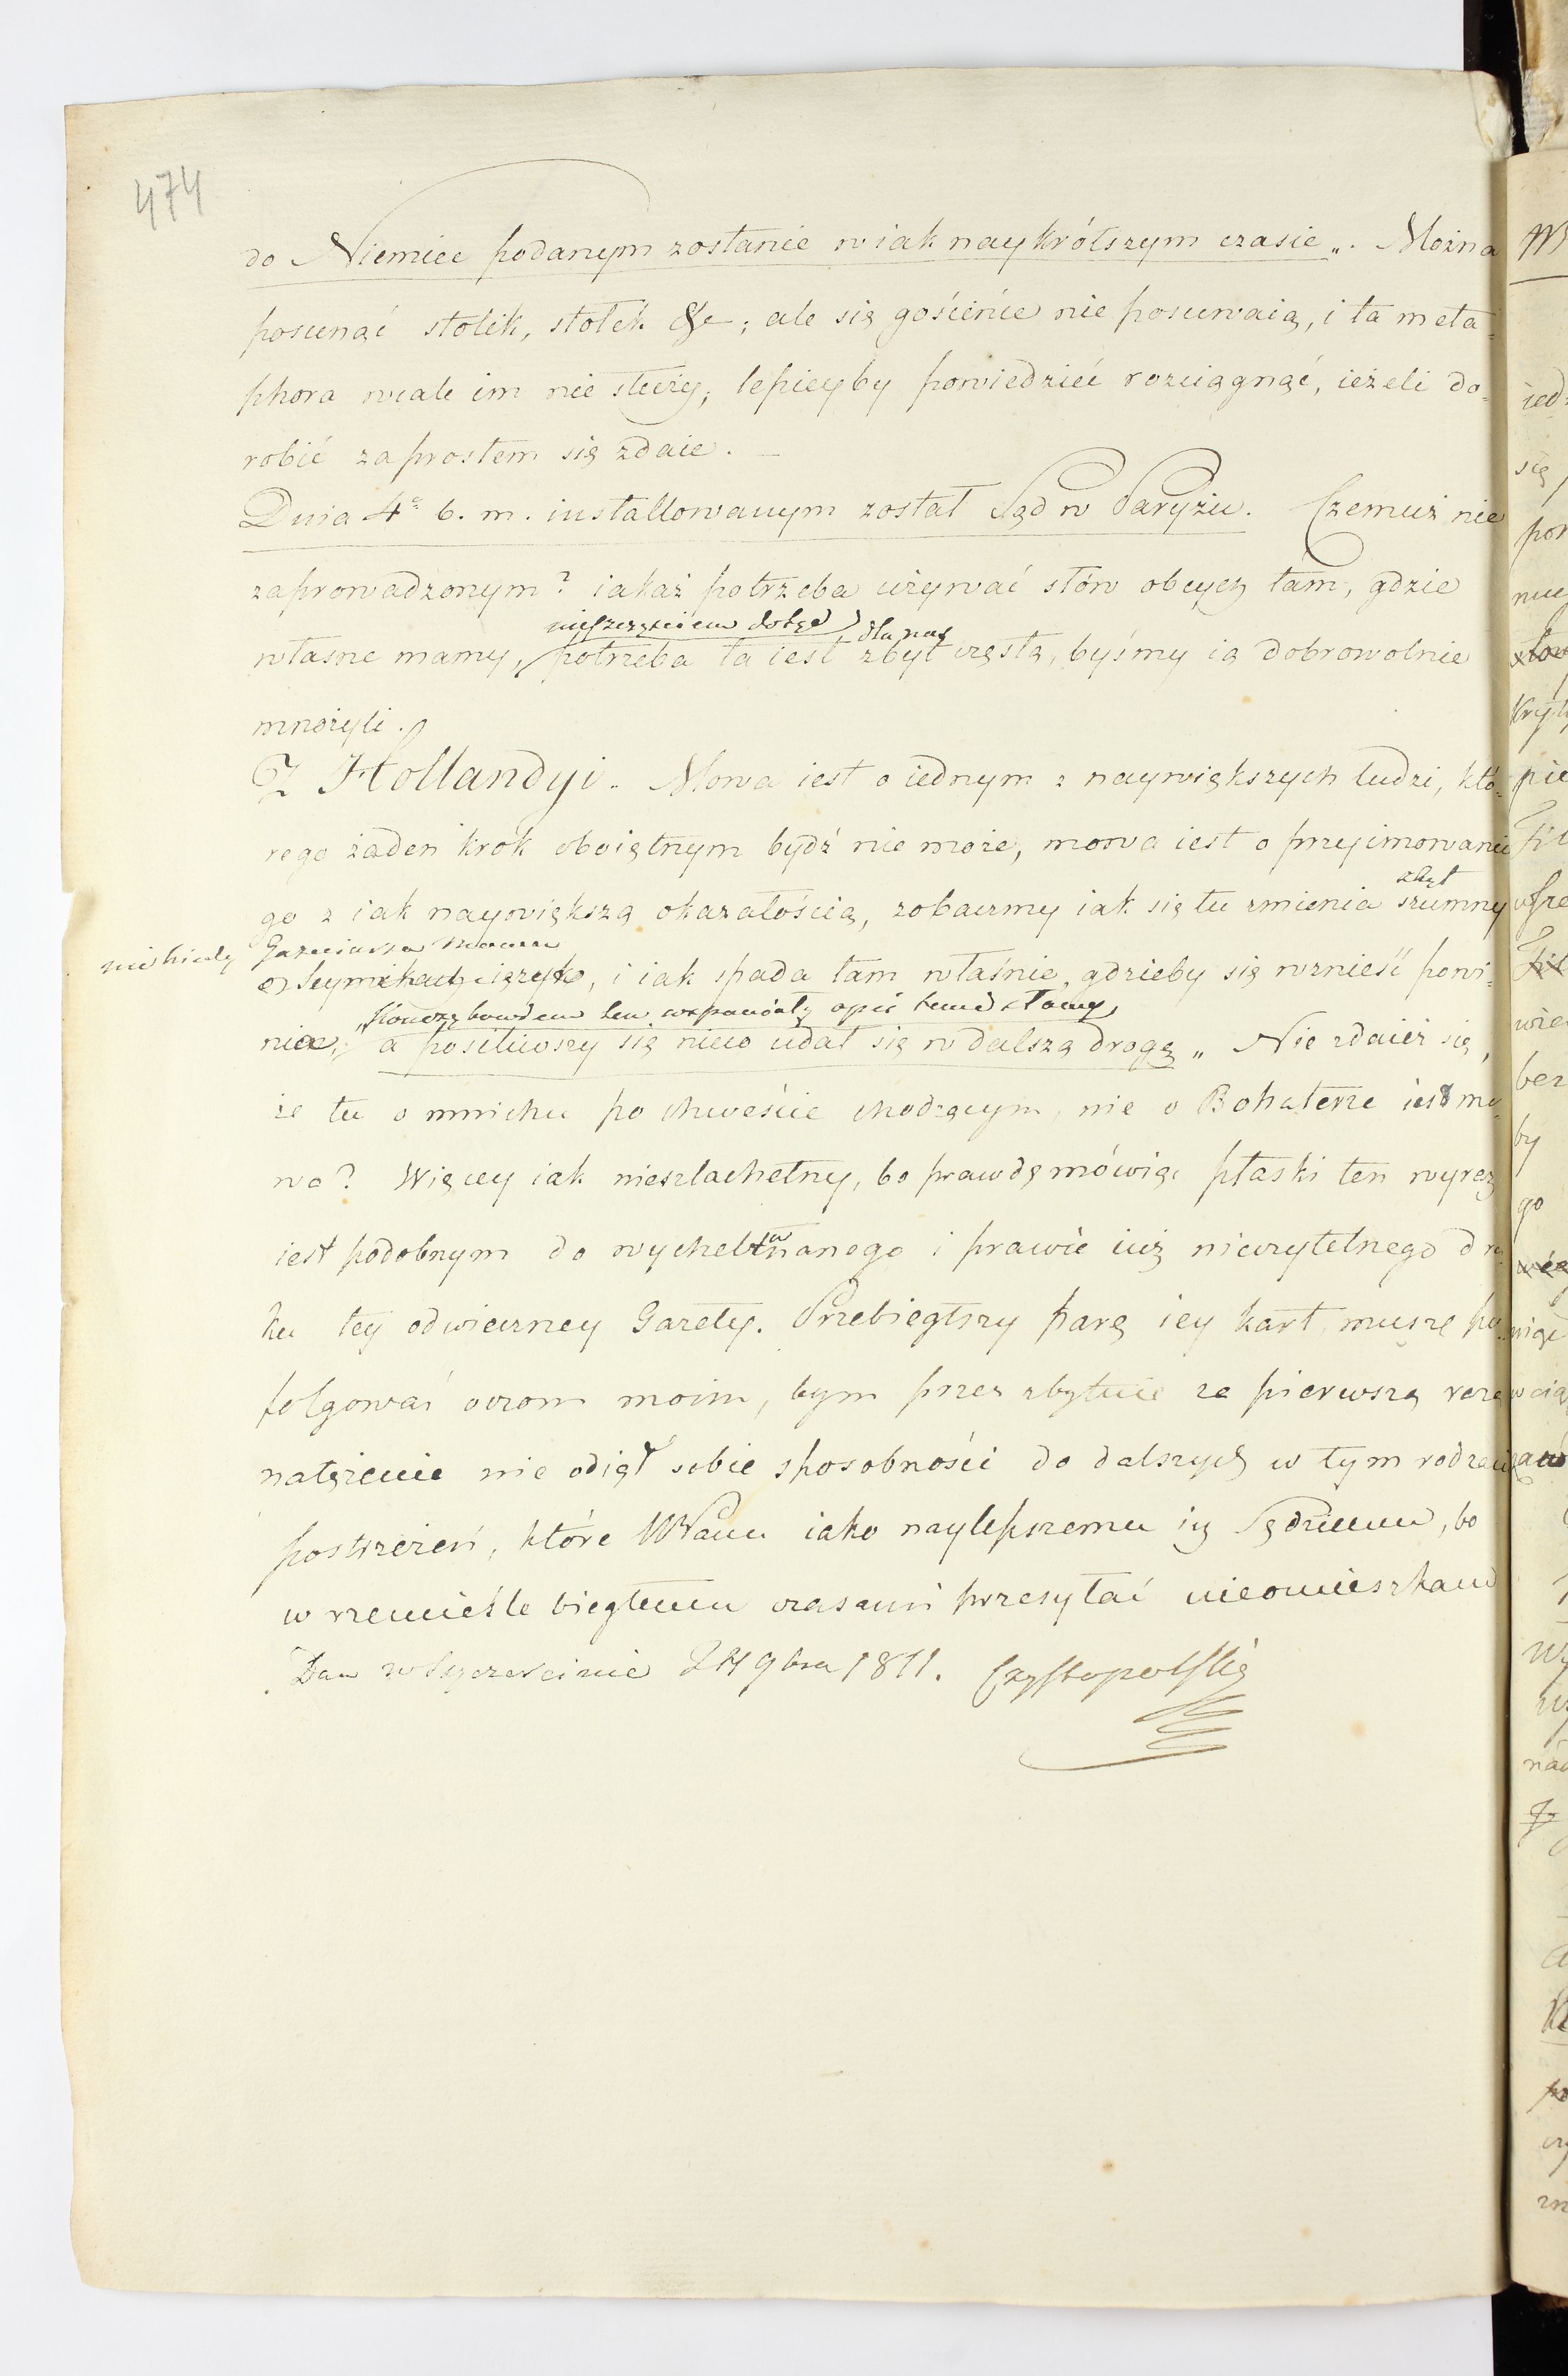 474
do Niemiec podanym zostanie w iak naykrótszym czasie„. Można
posunąć stolik, stołek &c; ale się gościńce nie posuwaią, i ta meta-
phora wcale im nie służy; lepieyby powiedzieć rozciągnąć, ieżeli do-
robić zaprostem się zdaie. —
Dnia 4º b. m. installowanym został Sąd w Paryżu. Czemuż nie
zaprowadzonym? iakaż potrzeba używać słów obcych tam, gdzie
nieszczęściem dotąd dla nas
własne mamy, potrzeba ta iest zbyt częstą, byśmy ią dobrowolnie
mnożyli.
Z Hollandyi. Mowa iest o iednym z naywiększych ludzi, któ-
rego żaden krok oboiętnym bydź nie może, mowa iest o przyimowaniu
zbyt
go z iak naywiększą okazałością, zobaczmy iak się tu zmienia szumny
niekiedy Gazeciarza
o Seymikach ięzyk, i iak spada tam właśnie, gdzieby się wznieść powi-
kończę bowiem ten wspaniały opis temi słowy
nien, a posiliwszy się nieco udał się w dalszą drogę„ Nie zdaież się,
że tu o mnichu po chweście chodzącym, nie o Bohaterze iest mo-
wa? Więcey iak nieszlachetny, bo prawdę mówiąc płaski ten wyraz
iest podobnym do wychełtanego i prawie iuż nieczytelnego dru-
ku tey odwieczney Gazety. Przebiegłszy parę iey kart, muszę po-
folgować oczom moim, bym przez zbytnie za pierwszą razą
natężenie nie odiął sobie sposobności do dalszych w tym rodzaiu
postrzeżeń, które WPanu iako naylepszemu ich Sędziemu, bo
w rzemieśle biegłemu czasami przesyłać nieomieszkam
Dan w Szczercinie 24 9bra 1811. Czystopolski